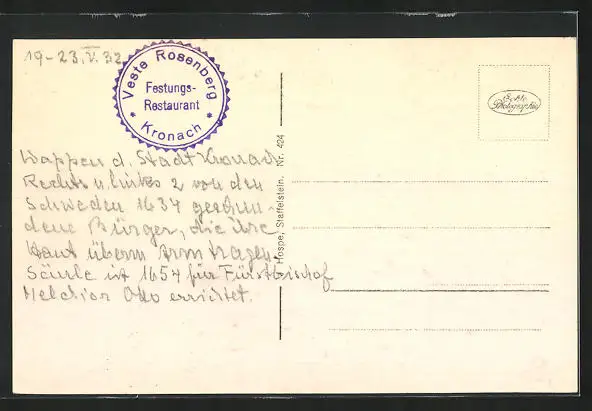 19-23.V.32
Veste Rosenberg
Festungs-
Restaurant
* Kronach *
Echte
Photographie
Wappen d. Stadt Kronach
Rechts u. links 2 von den
Schweden 1634 geschun-
dene Bürger, die ihre
Haut überm Arm tragen.
Säule ist 1654 für Fürstbischof
Melchior Otto errichtet.
Hospe, Staffelstein. Nr. 424